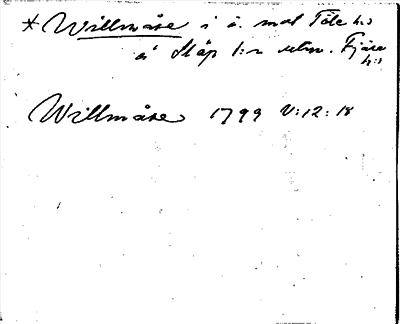 * Willmåse i ä. mot Töle h:d
å Släp 1:r utm. Fjäre
h:d
Willmåse 1799 V:12:18